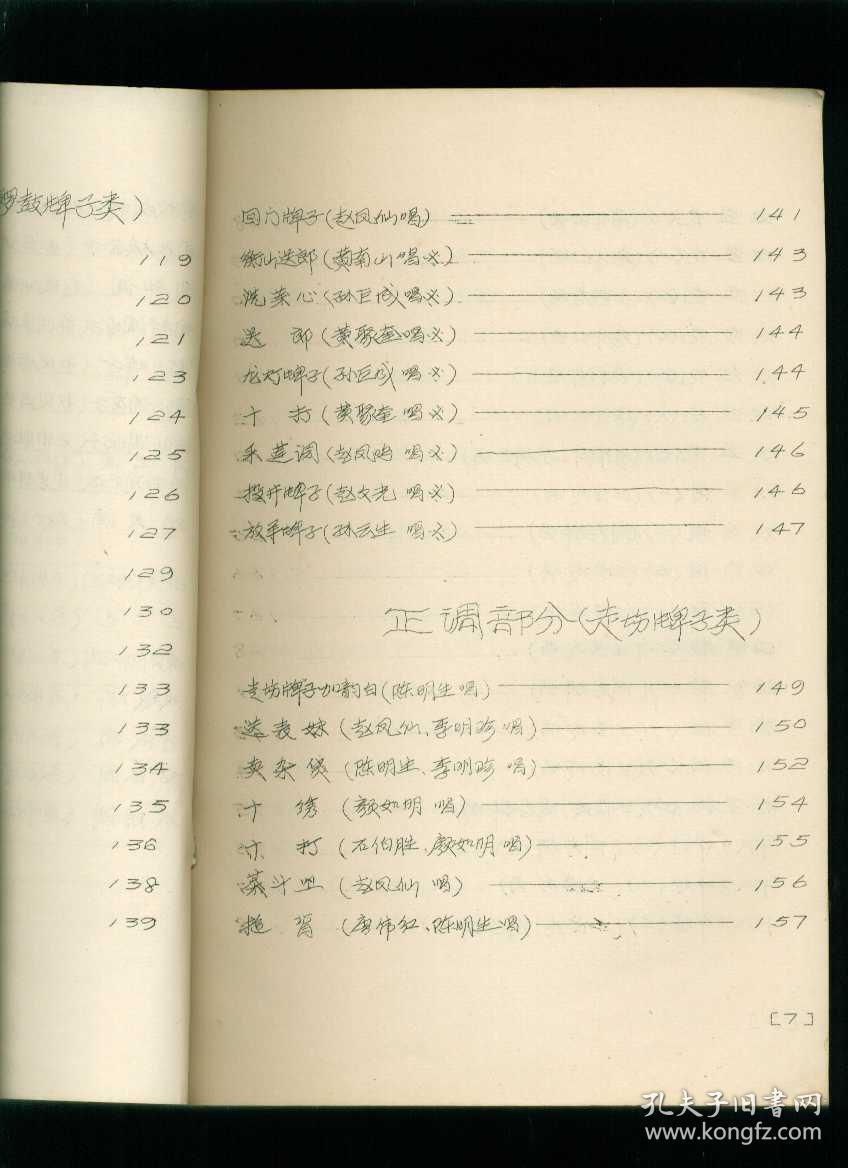 锣鼓牌子类)
119
120
121
123
124
125
126
127
129
130
132
133
133
134
135
136
138
139
回门牌子(赵凤仙唱) 141
衡山送郎(黄南山唱 143
洗菜心(孙巨成唱 143
送 郎(黄聚奎唱 144
龙灯牌子(孙巨成 唱 144
十 打(黄聚奎 唱 145
采莲调(赵凤鸣 唱 146
投井牌子(赵文光 唱 146
放羊牌子(孙云生 唱 147
正调部分(走场牌子类)
走场牌子加韵白(陈明生唱) 149
送表妹(赵凤仙、李明珍唱) 150
卖杂货(陈明生、李明珍 唱) 152
十 绣(颜如明 唱) 154
十 打(石伯胜、颜如明唱) 155
(赵凤仙 唱) 156
(唐伟红、陈明生唱) 157
[7]
孔夫子旧书网
www.kongfz.com